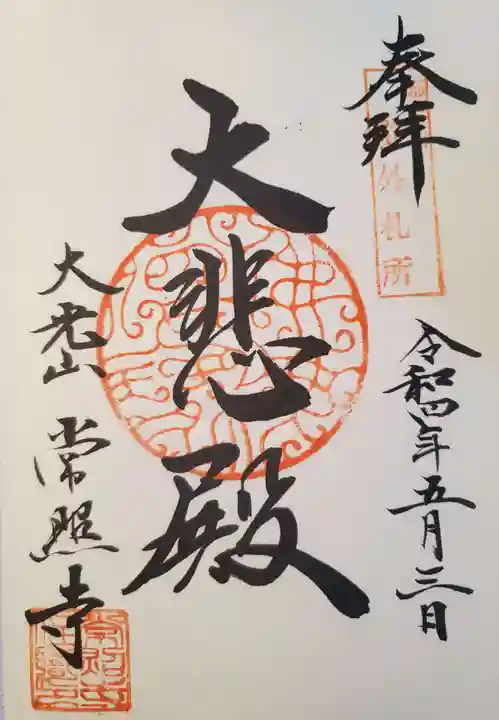 奉拝
外札所
令和四年五月三日
大悲殿
大光山 常照寺